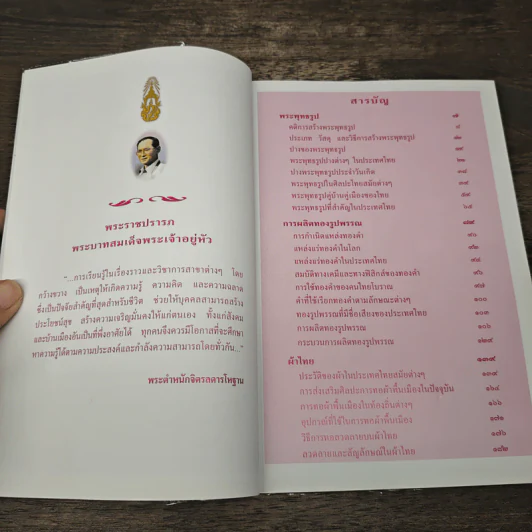 พระราชปรารภ
พระบาทสมเด็จพระเจ้าอยู่หัว
"...การเรียนรู้ในเรื่องราวและวิชาการสาขาต่างๆ โดย
กว้างขวาง เป็นเหตุให้เกิดความรู้ ความคิด และความฉลาด
ซึ่งเป็นปัจจัยสำคัญที่สุดสำหรับชีวิต ช่วยให้บุคคลสามารถสร้าง
ประโยชน์สุข สร้างความเจริญมั่นคงให้แก่ตนเอง ทั้งแก่สังคม
และบ้านเมืองอันเป็นที่พึ่งอาศัยได้ ทุกคนจึงควรมีโอกาสที่จะศึกษา
หาความรู้ได้ตามความประสงค์และกำลังความสามารถโดยทั่วกัน..."
พระตำหนักจิตรลดารโหฐาน
สารบัญ
พระพุทธรูป ๗
คติการสร้างพระพุทธรูป ๙
ประเภท วัสดุ และวิธีการสร้างพระพุทธรูป
ปางของพระพุทธรูป
พระพุทธรูปปางต่างๆ ในประเทศไทย
ปางพระพุทธรูปประจำวันเกิด
พระพุทธรูปในศิลปะไทยสมัยต่างๆ
พระพุทธรูปคู่บ้านคู่เมืองของไทย
พระพุทธรูปที่สำคัญในประเทศไทย
การผลิตทองรูปพรรณ
การกำเนิดแหล่งทองคำ
แหล่งแร่ทองคำในโลก
แหล่งแร่ทองคำในประเทศไทย
สมบัติทางเคมีและทางฟิสิกส์ของทองคำ
การใช้ทองคำของคนไทยโบราณ
คำที่ใช้เรียกทองคำตามลักษณะต่างๆ ๑๐๑
ทองรูปพรรณที่มีชื่อเสียงของประเทศไทย ๑๐๓
การผลิตทองรูปพรรณ ๑๐๖
กระบวนการผลิตทองรูปพรรณ
ผ้าไทย ๑๓๙
ประวัติของผ้าในประเทศไทยสมัยต่างๆ
การส่งเสริมศิลปะการทอผ้าพื้นเมืองในปัจจุบัน ๑๖๔
การทอผ้าพื้นเมืองในท้องถิ่นต่างๆ ๑๖๖
อุปกรณ์ที่ใช้ในการทอผ้าพื้นเมือง ๑๗๑
วิธีการทอลวดลายบนผ้าไทย ๑๗๖
ลวดลายและสัญลักษณ์ในผ้าไทย ๑๘๒